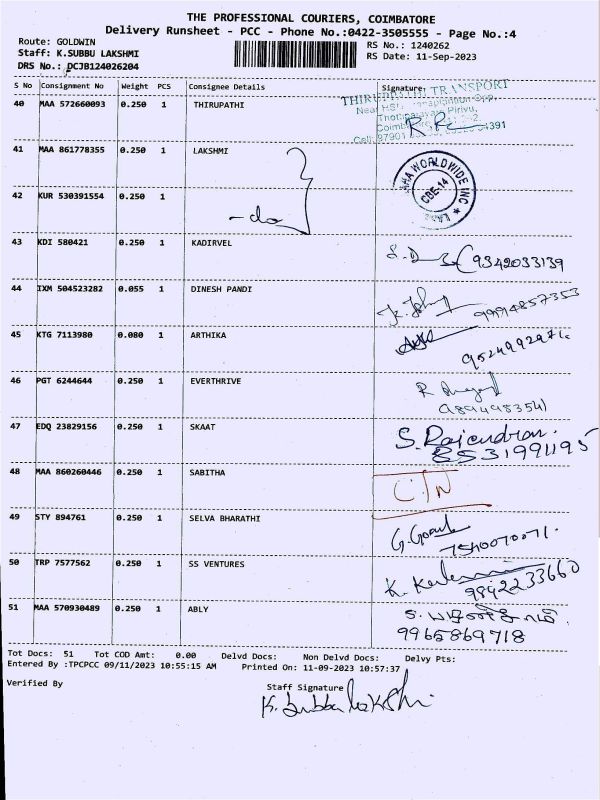 THE PROFESSIONAL COURIERS, COIMBATORE
Delivery Runsheet - PCC - Phone No.:0422-3505555 - Page No.:4
Route: GOLDWIN RS No.: 1240262
Staff: K.SUBBU LAKSHMI RS Date: 11-Sep-2023
DRS No.: DCJB124026204
S No Consignment No Weight PCS Consignee Details Signature:
40 MAA 572660093 0.250 1 THIRUPATHI
THIRUPPATHI TRANSPORT
41 MAA 861778355 0.250 1 LAKSHMI
AHA WORLDWIDE INC
CBE-14
42 KUR 530391554 0.250 1
-do
43 KDI 580421 0.250 1 KADIRVEL
9342033139
44 IXM 504523282 0.055 1 DINESH PANDI
9994857353
45 KTG 7113980 0.080 1 ARTHIKA
9524992971.
46 PGT 6244644 0.250 1 EVERTHRIVE
9894498354
47 EDQ 23829156 0.250 1 SKAAT
S. Rajendran.
8531991195
48 MAA 860260446 0.250 1 SABITHA
C/N
49 STY 894761 0.250 1 SELVA BHARATHI
7540070071.
50 TRP 7577562 0.250 1 SS VENTURES
9842233660
51 MAA 570930489 0.250 1 ABLY
9965869718
Tot Docs: 51 Tot COD Amt: 0.00 Delvd Docs: Non Delvd Docs: Delvy Pts:
Entered By :TPCPCC 09/11/2023 10:55:15 AM Printed On: 11-09-2023 10:57:37
Verified By Staff Signature
K. Subbu lakshmi